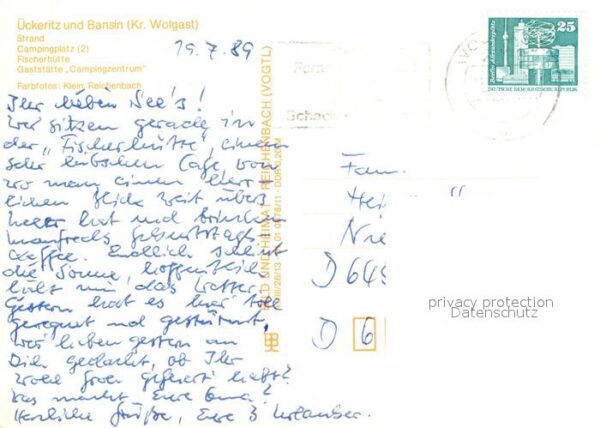 Ückeritz und Bansin (Kr. Wolgast)
Strand
Campingplatz (2)
Fischerhütte
Gaststätte „Campingzentrum"
Farbfotos: Klein, Reichenbach
19.7.89
Ihr lieben Nee's!
Wir sitzen gerade in
der „Fischerhütte", einem
sehr hübschen Café von
wo man einen herr-
lichen Blick weit übers
Meer hat und trinken
Manfreds Geburtstags-
kaffee. Endlich scheint
die Sonne, hoffentlich
hält nun das Wetter.
Gestern hat es hier toll
geregnet und gestürmt.
Wir haben gestern an
Dich gedacht, ob Ihr
wohl groß gefeiert habt?
Was macht Eure Oma?
Herzliche Grüße, Eure 3 Urlauber.
BILD UND HEIMAT REICHENBACH (VOGTL)
25
Berlin, Alexanderplatz
DEUTSCHE DEMOKRATISCHE REPUBLIK
Fam.
Hei
Nie
D 645
D 6
privacy protection
Datenschutz